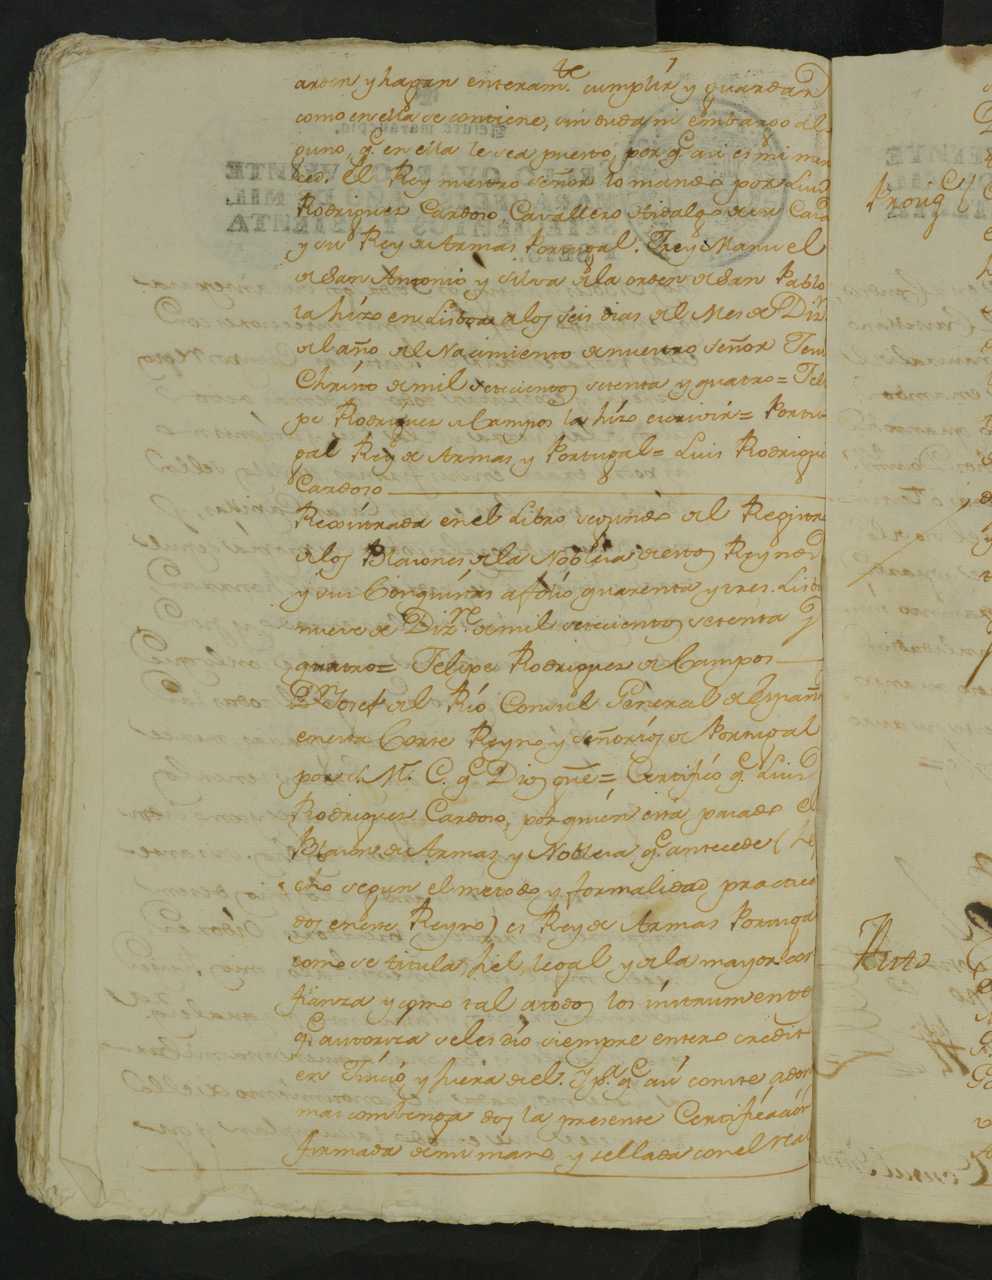 orden y hagan enteram.te cumplir y guardar
como en ella se contiene, sin duda ni embargo al-
guno, q.e en ella le sea puesto, por q.e asi es mi mer
ced, El Rey nuestro señor lo mandó por Luis
Rodriguez Cardoso Cavallero Hidalgo de su Casa
y su Rey de Armas Portugal. Frey Manuel
de San Antonio y Silva de la orden de San Pablo
la hizo en Lisboa a los seis dias del Mes de Diz.e
del año del Nacimiento de nuestro Señor Jesu
Christo de mil setecientos setenta y quatro= Feli
pe Rodriguez de Campos la hizo escrivir= Portu-
gal Rey de Armas y Portugal= Luis Rodriguez
Cardoso
Rexistrada en el Libro segundo del Registro
de los Blasones de la Nobleza de estos Reynos
y sus Conquistas a folio quarenta y tres. Lisboa
nueve de Diz.re de mil setecientos setenta y
quatro= Felipe Rodriguez de Campos
D.n Josef del Rio Consul General de España
en esta Corte Reyno y Señorios de Portugal
por S. M. C. q.e Dios gue= Certifico q.e Luis
Rodriguez Cardoso, por quien está pasado el
Blason de Armas y Nobleza q.e antecede (he
cho segun el metodo y formalidad practica
dos en este Reyno) es Rey de Armas Portugal
como se titula, fiel, legal y de la mayor con
fianza y como tal a todos los instrumentos
q.e autoriza se les dió siempre entero credito
en Juicio y fuera de el. Y p.a q.e asi conste a don
mas combenga doy la presente Certificacion
firmada de mi mano y sellada con el Real
Auto